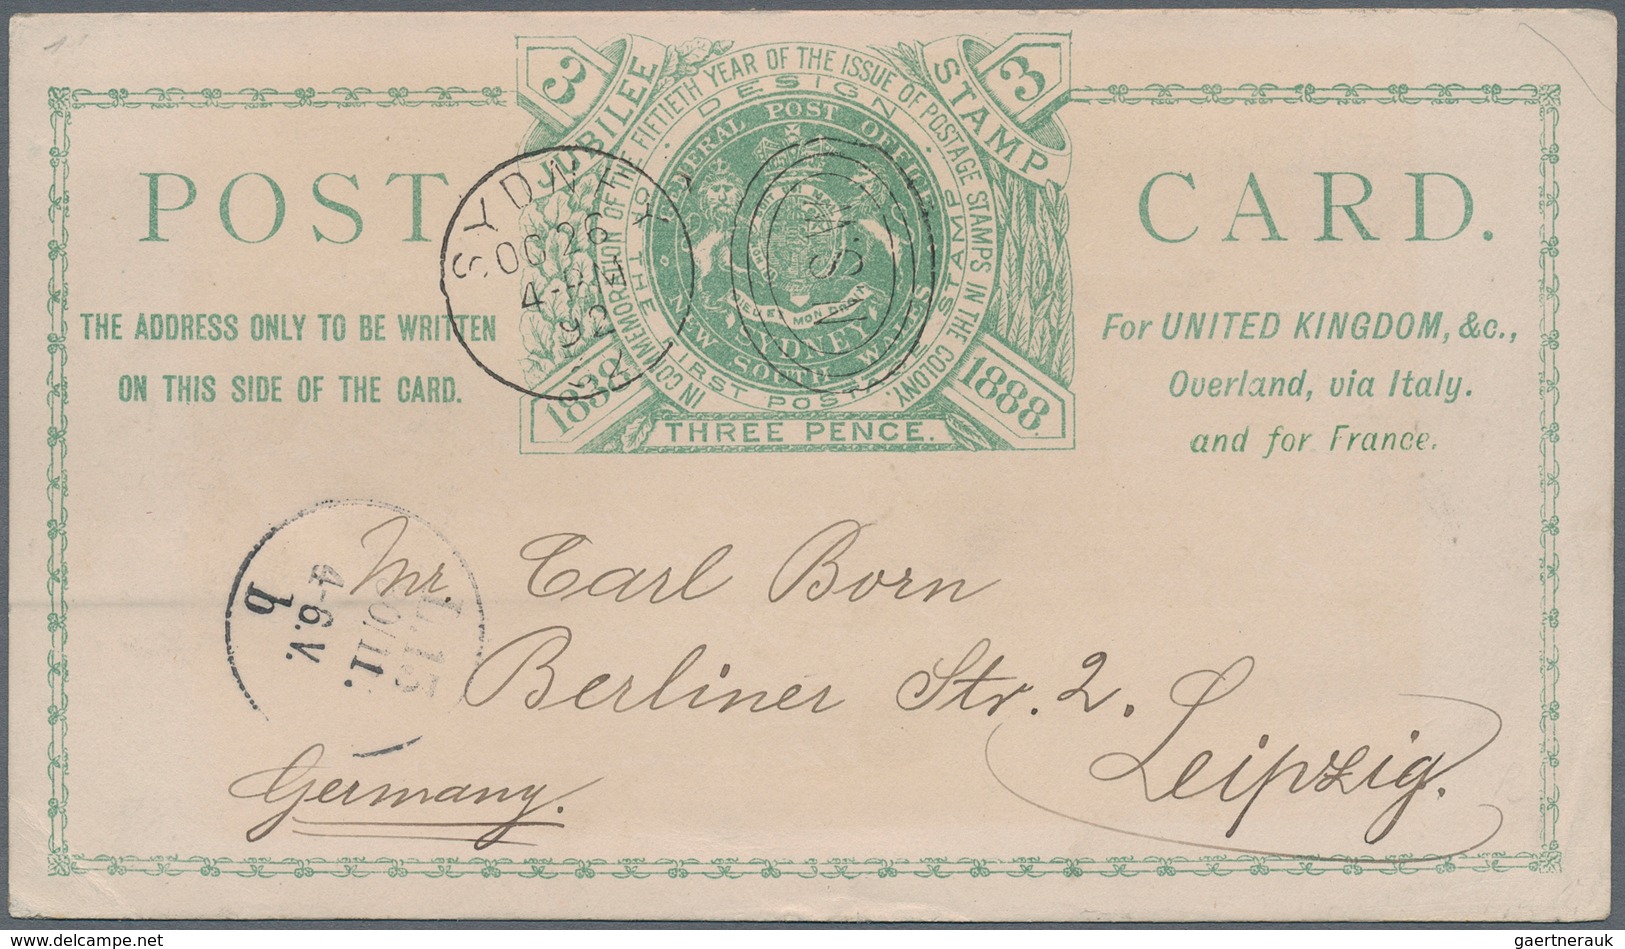 3 JUBILEE STAMP 3
IN COMMEMORATION OF THE FIFTIETH YEAR OF THE ISSUE OF POSTAGE STAMPS IN THE COLONY.
DESIGN
OF THE FIRST POSTAGE STAMP
GENERAL POST OFFICE
SYDNEY
NEW SOUTH WALES
1888 1888.
THREE PENCE.
POST CARD.
THE ADDRESS ONLY TO BE WRITTEN
ON THIS SIDE OF THE CARD.
For UNITED KINGDOM, &c.,
Overland, via Italy.
and for France.
SYDNEY
OC 26
4-PM
92
N.S.W
Mr. Carl Born
Berliner Str. 2.
Leipzig.
Germany.
4-6.V.
b
delcampe.net
gaertnerauk